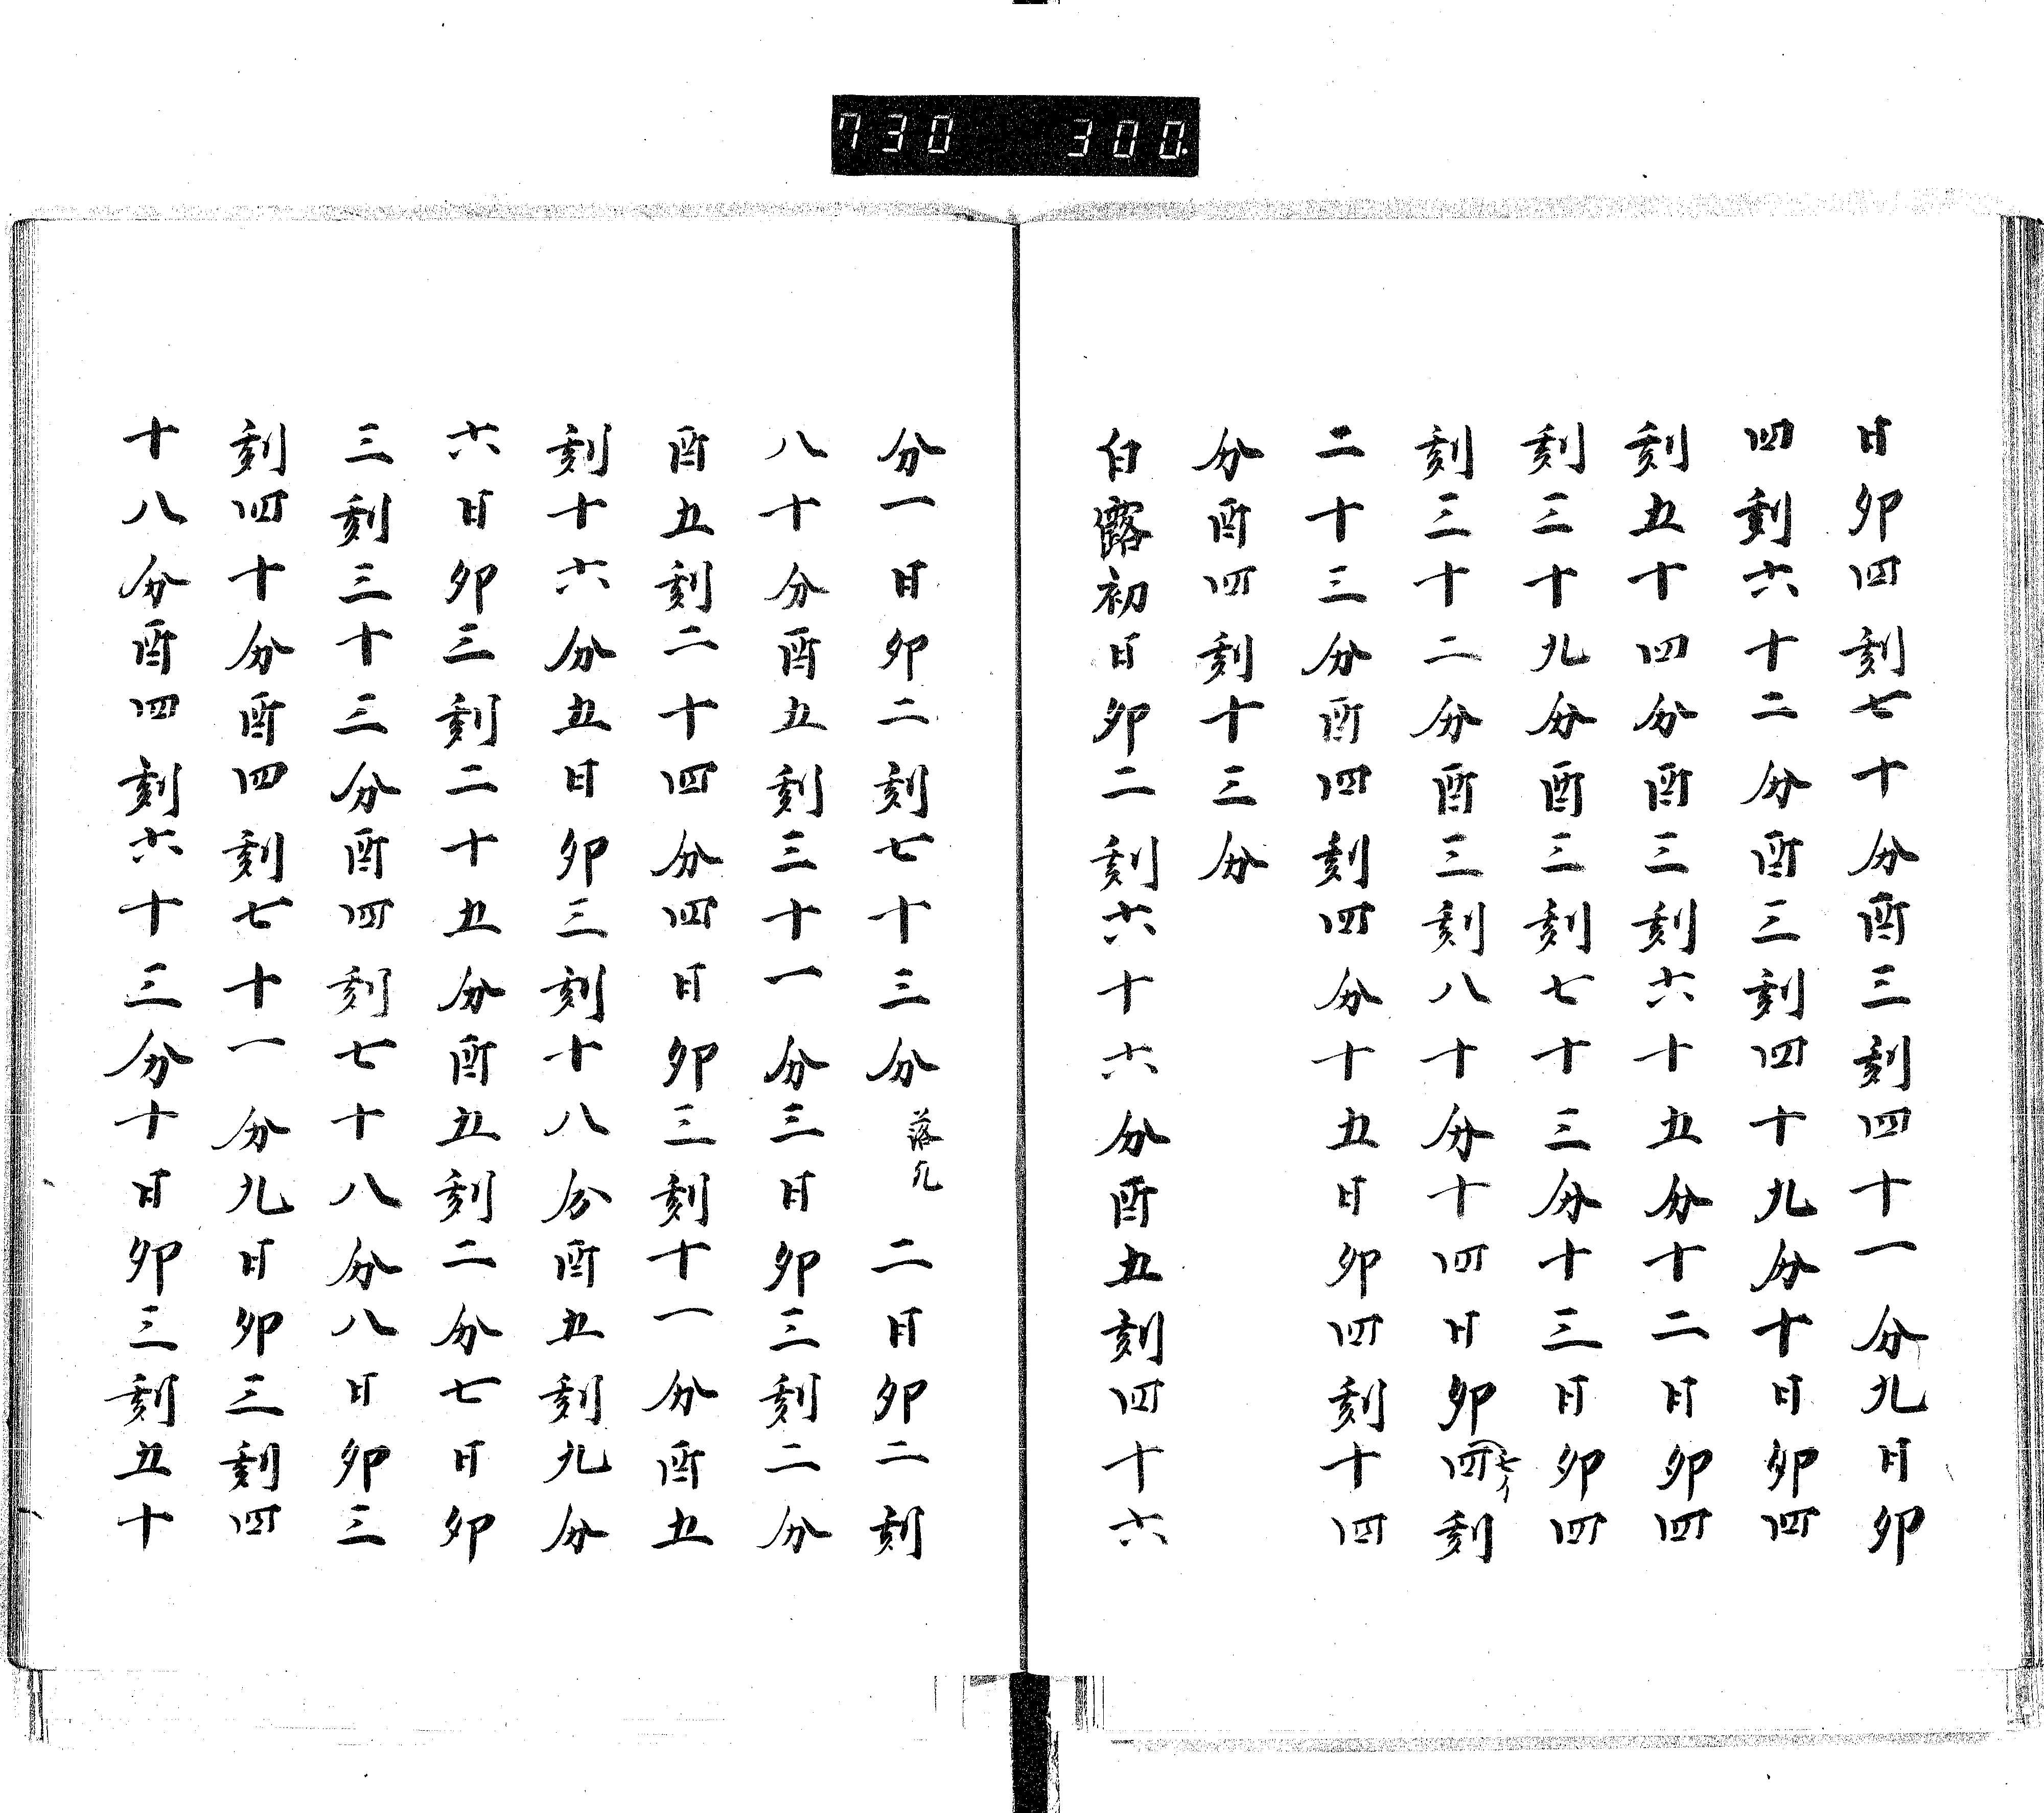 730 300.
日卯四刻七十分酉三刻四十一分九日卯
四刻六十二分酉三刻四十九分十日卯四
刻五十四分酉三刻六十五分十二日卯四
刻三十九分酉三刻七十三分十三日卯四
刻三十二分酉三刻八十分十四日卯四刻
二十三分酉四刻四分十五日卯四刻十四
分酉四刻十三分
白露初日卯二刻六十六分酉五刻四十六
分一日卯二刻七十三分落九二日卯二刻
八十分酉五刻三十一分三日卯三刻二分
酉五刻二十四分四日卯三刻十一分酉五
刻十六分五日卯三刻十八分酉五刻九分
六日卯三刻二十五分酉五刻二分七日卯
三刻三十三分酉四刻七十八分八日卯三
刻四十分酉四刻七十一分九日卯三刻四
十八分酉四刻六十三分十日卯三刻五十